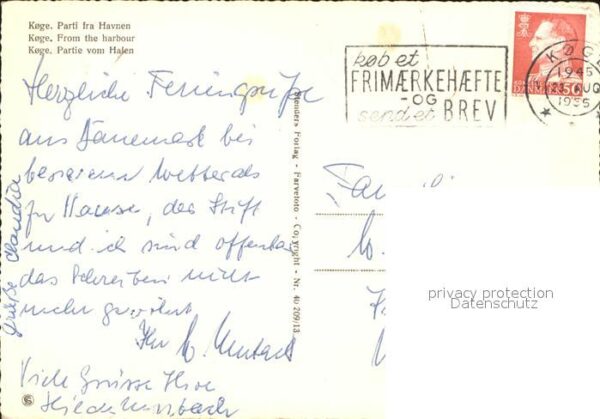 Køge. Parti fra Havnen
Køge. From the harbour
Køge. Partie vom Hafen
køb et
FRIMÆRKEHÆFTE
-OG
send et BREV
KØGE
1945
AUG
DANMARK
50
Herzliche Feriengrüße
aus Dänemark bei
besserem Wetter als
zu Hause, der Stift
und ich sind offenbar
das Schreiben nicht
mehr gewöhnt
Ihr
Viele Grüsse Ihre
Grüße Claudia
Stenders Forlag - Farvefoto - Copyright - Nr. 40 209/13
Fam
privacy protection
Datenschutz